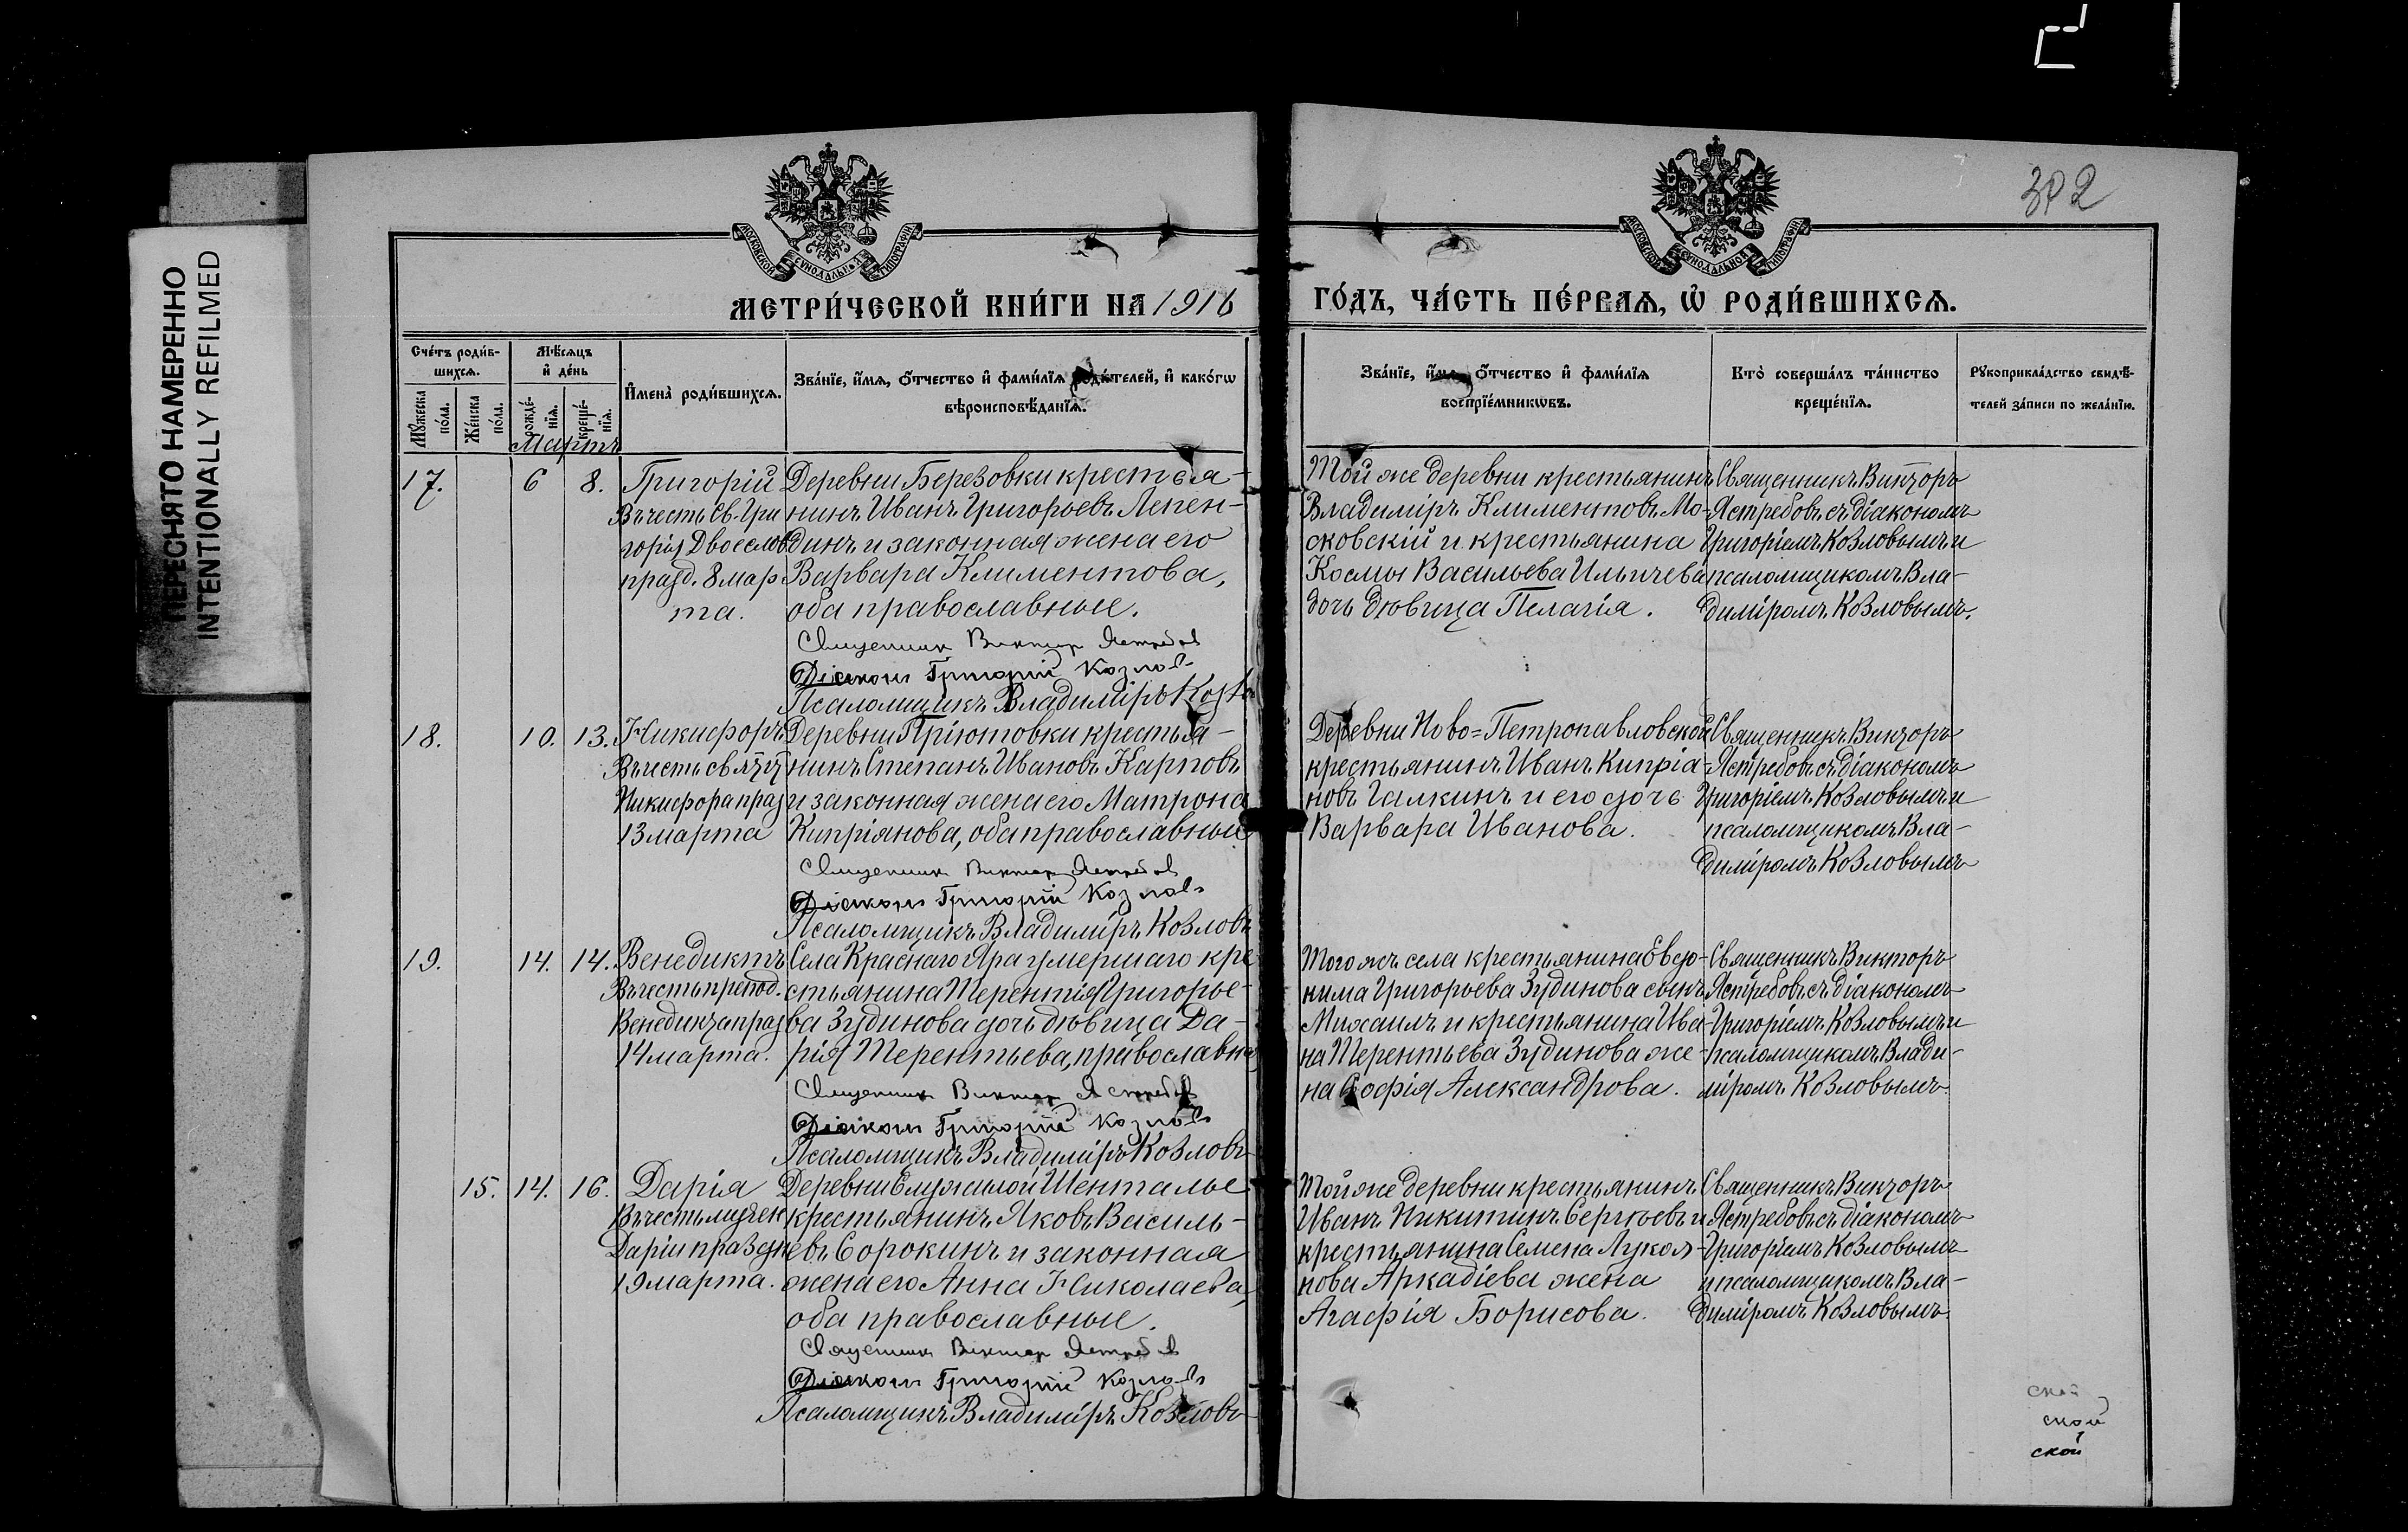 ПЕРЕСНЯТО НАМЕРЕННО
INTENTIONALLY REFILMED
302
МОСКОВСКОЙ СѴНОДАЛЬНОЙ ТИПОГРАФІИ
МОСКОВСКОЙ СѴНОДАЛЬНОЙ ТИПОГРАФІИ
МЕТРИ́ЧЕСКОЙ КНИ́ГИ НА 1916
ГО́ДЪ, ЧА́СТЬ ПЕ́РВАѦ, Ѡ҆ РОДИ́ВШИХСѦ.
Сче́тъ роди́в-
шихсѧ.
Мꙋжеска по́ла.
Же́нска по́ла.
Мѣ́сѧцъ
и҆ де́нь
рожде́-
нїѧ.
креще́-
нїѧ.
И҆мена̀ роди́вшихсѧ.
Зва́нїе, и҆́мѧ, ѻ҆́тчество и҆ фами́лїѧ роди́телей, и҆ како́гѡ
вѣроисповѣ́данїѧ.
Зва́нїе, и҆́мѧ, ѻ҆́тчество и҆ фами́лїѧ
воспрїе́мникѡвъ.
Кто̀ соверша́лъ та́инство
креще́нїѧ.
Рꙋкоприкла́дство свидѣ́-
телей за́писи по жела́нїю.
Мартъ
17. 6 8.
Григорій
Въ честь Св. Гри
горія Двоеслов
празд. 8 мар-
та.
Деревни Березовки крестья-
нинъ Иванъ Григорьевъ Лепен-
динъ и законная жена его
Варвара Климентова,
оба православные.
Священникъ Викторъ Ястребовъ
Діаконъ Григорій Козловъ
Псаломщикъ Владиміръ Козло
Той же деревни крестьянинъ
Владиміръ Климентовъ Мо-
сковскій и крестьянина
Космы Васильева Ильичева
дочь дѣвица Пелагія.
Священникъ Викторъ
Ястребовъ съ діакономъ
Григоріемъ Козловымъ и
псаломщикомъ Вла-
диміромъ Козловымъ.
18. 10. 13.
Никифоръ
Въ честь св. муч
Никифора праз
13 марта
Деревни Пріютовки крестья-
нинъ Степанъ Ивановъ Карповъ
и законная жена его Матрона
Кипріянова, оба православные
Священникъ Викторъ Ястребовъ
Діаконъ Григорій Козловъ
Псаломщикъ Владиміръ Козловъ
Деревни Ново=Петропавловской
крестьянинъ Иванъ Кипріа-
новъ Галкинъ и его дочь
Варвара Иванова.
Священникъ Викторъ
Ястребовъ съ діакономъ
Григоріемъ Козловымъ и
псаломщикомъ Вла-
диміромъ Козловымъ
19. 14. 14.
Венедиктъ
Въ честь препод.
Венедикта праз
14 марта.
Села Краснаго Яра умершаго кре-
стьянина Терентія Григорье-
ва Зудинова дочь дѣвица Да-
рія Терентьева, православна
Священникъ Викторъ Ястребовъ
Діаконъ Григорій Козловъ
Псаломщикъ Владиміръ Козловъ
Того жъ села крестьянина Евдо-
кима Григорьева Зудинова сынъ
Михаилъ и крестьянина Ива-
на Терентьева Зудинова же-
на Софія Александрова.
Священникъ Викторъ
Ястребовъ съ діакономъ
Григоріемъ Козловымъ и
псаломщикомъ Влади-
міромъ Козловымъ.
15. 14. 16.
Дарія
Въ честь мучен
Даріи праздн
19 марта.
Деревни Елужилой Шенталы
крестьянинъ Яковъ Василь-
евъ Сорокинъ и законная
жена его Анна Николаева,
оба православные.
Священникъ Викторъ Ястребовъ
Діаконъ Григорій Козловъ
Псаломщикъ Владиміръ Козловъ
Той же деревни крестьянинъ
Иванъ Никитинъ Сергѣевъ и
крестьянина Семена Лукоя-
нова Аркадіева жена
Агафія Борисова.
Священникъ Викторъ
Ястребовъ съ діакономъ
Григоріемъ Козловымъ
и псаломщикомъ Вла-
диміромъ Козловымъ.
ской
ской
ской